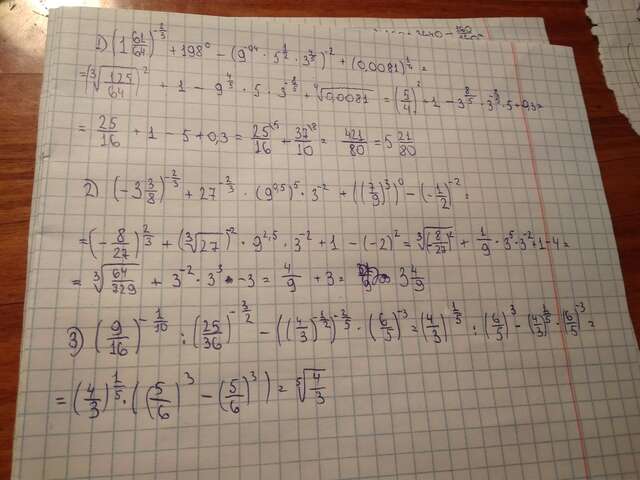 1) (1 61/64)^(-2/3) + 198^0 - (9^0,4 · 5^(1/2) · 3^(2/5))^-2 + (0,0081)^(1/4) =
= (∛(125/64))^2 + 1 - 9^(4/5) · 5 · 3^(-8/5) + ∜0,0081 = (5/4)^2 + 1 - 3^(8/5) · 3^(-8/5) · 5 + 0,3 =
= 25/16 + 1 - 5 + 0,3 = 25/16 + 37/10 = 421/80 = 5 21/80
2) (-3 3/8)^(-2/3) + 27^(-2/3) · (9^0,5)^5 · 3^-2 + ((7/9)^3)^0 - (-1/2)^-2 =
= (-8/27)^(2/3) + (∛27)^-2 · 9^2,5 · 3^-2 + 1 - (-2)^2 = ∛(8/-27)^2 + 1/9 · 3^5 · 3^-2 + 1 - 4 =
= ∛(64/729) + 3^-2 · 3^3 - 3 = 4/9 + 3 = 3 4/9
3) (9/16)^(-1/10) : (25/36)^(-3/2) - ((4/3)^(-1/2))^(-2/5) · (6/5)^-3 = (4/3)^(1/5) : (6/5)^3 - (4/3)^(1/5) · (6/5)^-3 =
= (4/3)^(1/5) · ((5/6)^3 - (5/6)^3) = ⁵√(4/3)